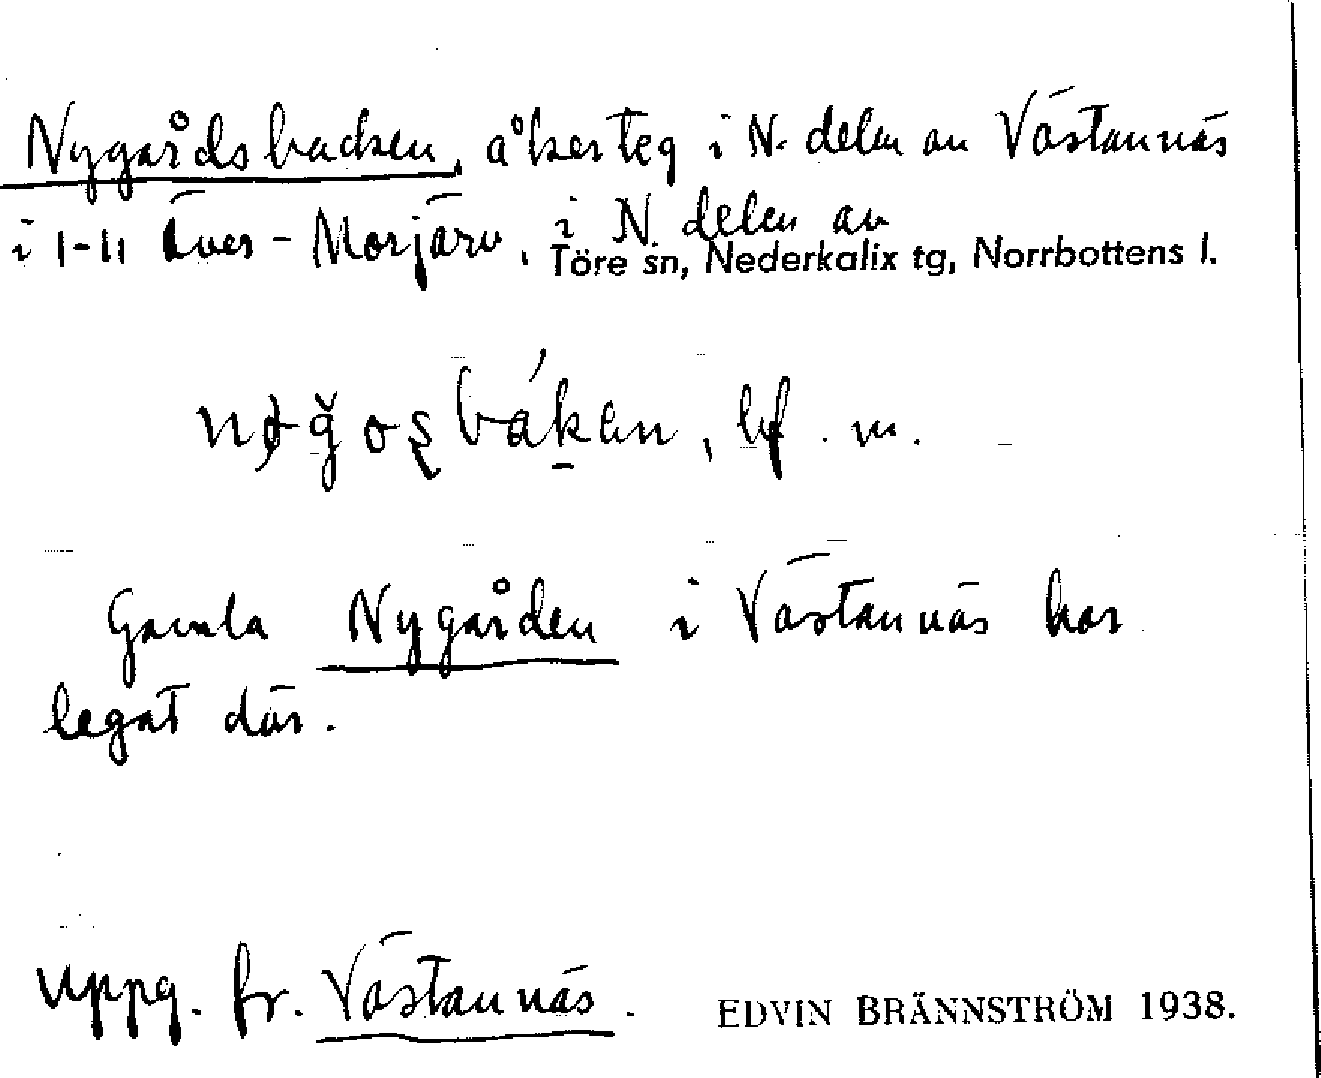 Nygårdsbacken, åkerteg i N. delen av Västannäs
i 1-11 Över-Morjärv, i N. delen av
Töre sn, Nederkalix tg, Norrbottens l.
bf. m.
Gamla Nygården i Västannäs har
legat där.
Uppg. fr. Västannäs.
EDVIN BRÄNNSTRÖM 1938.